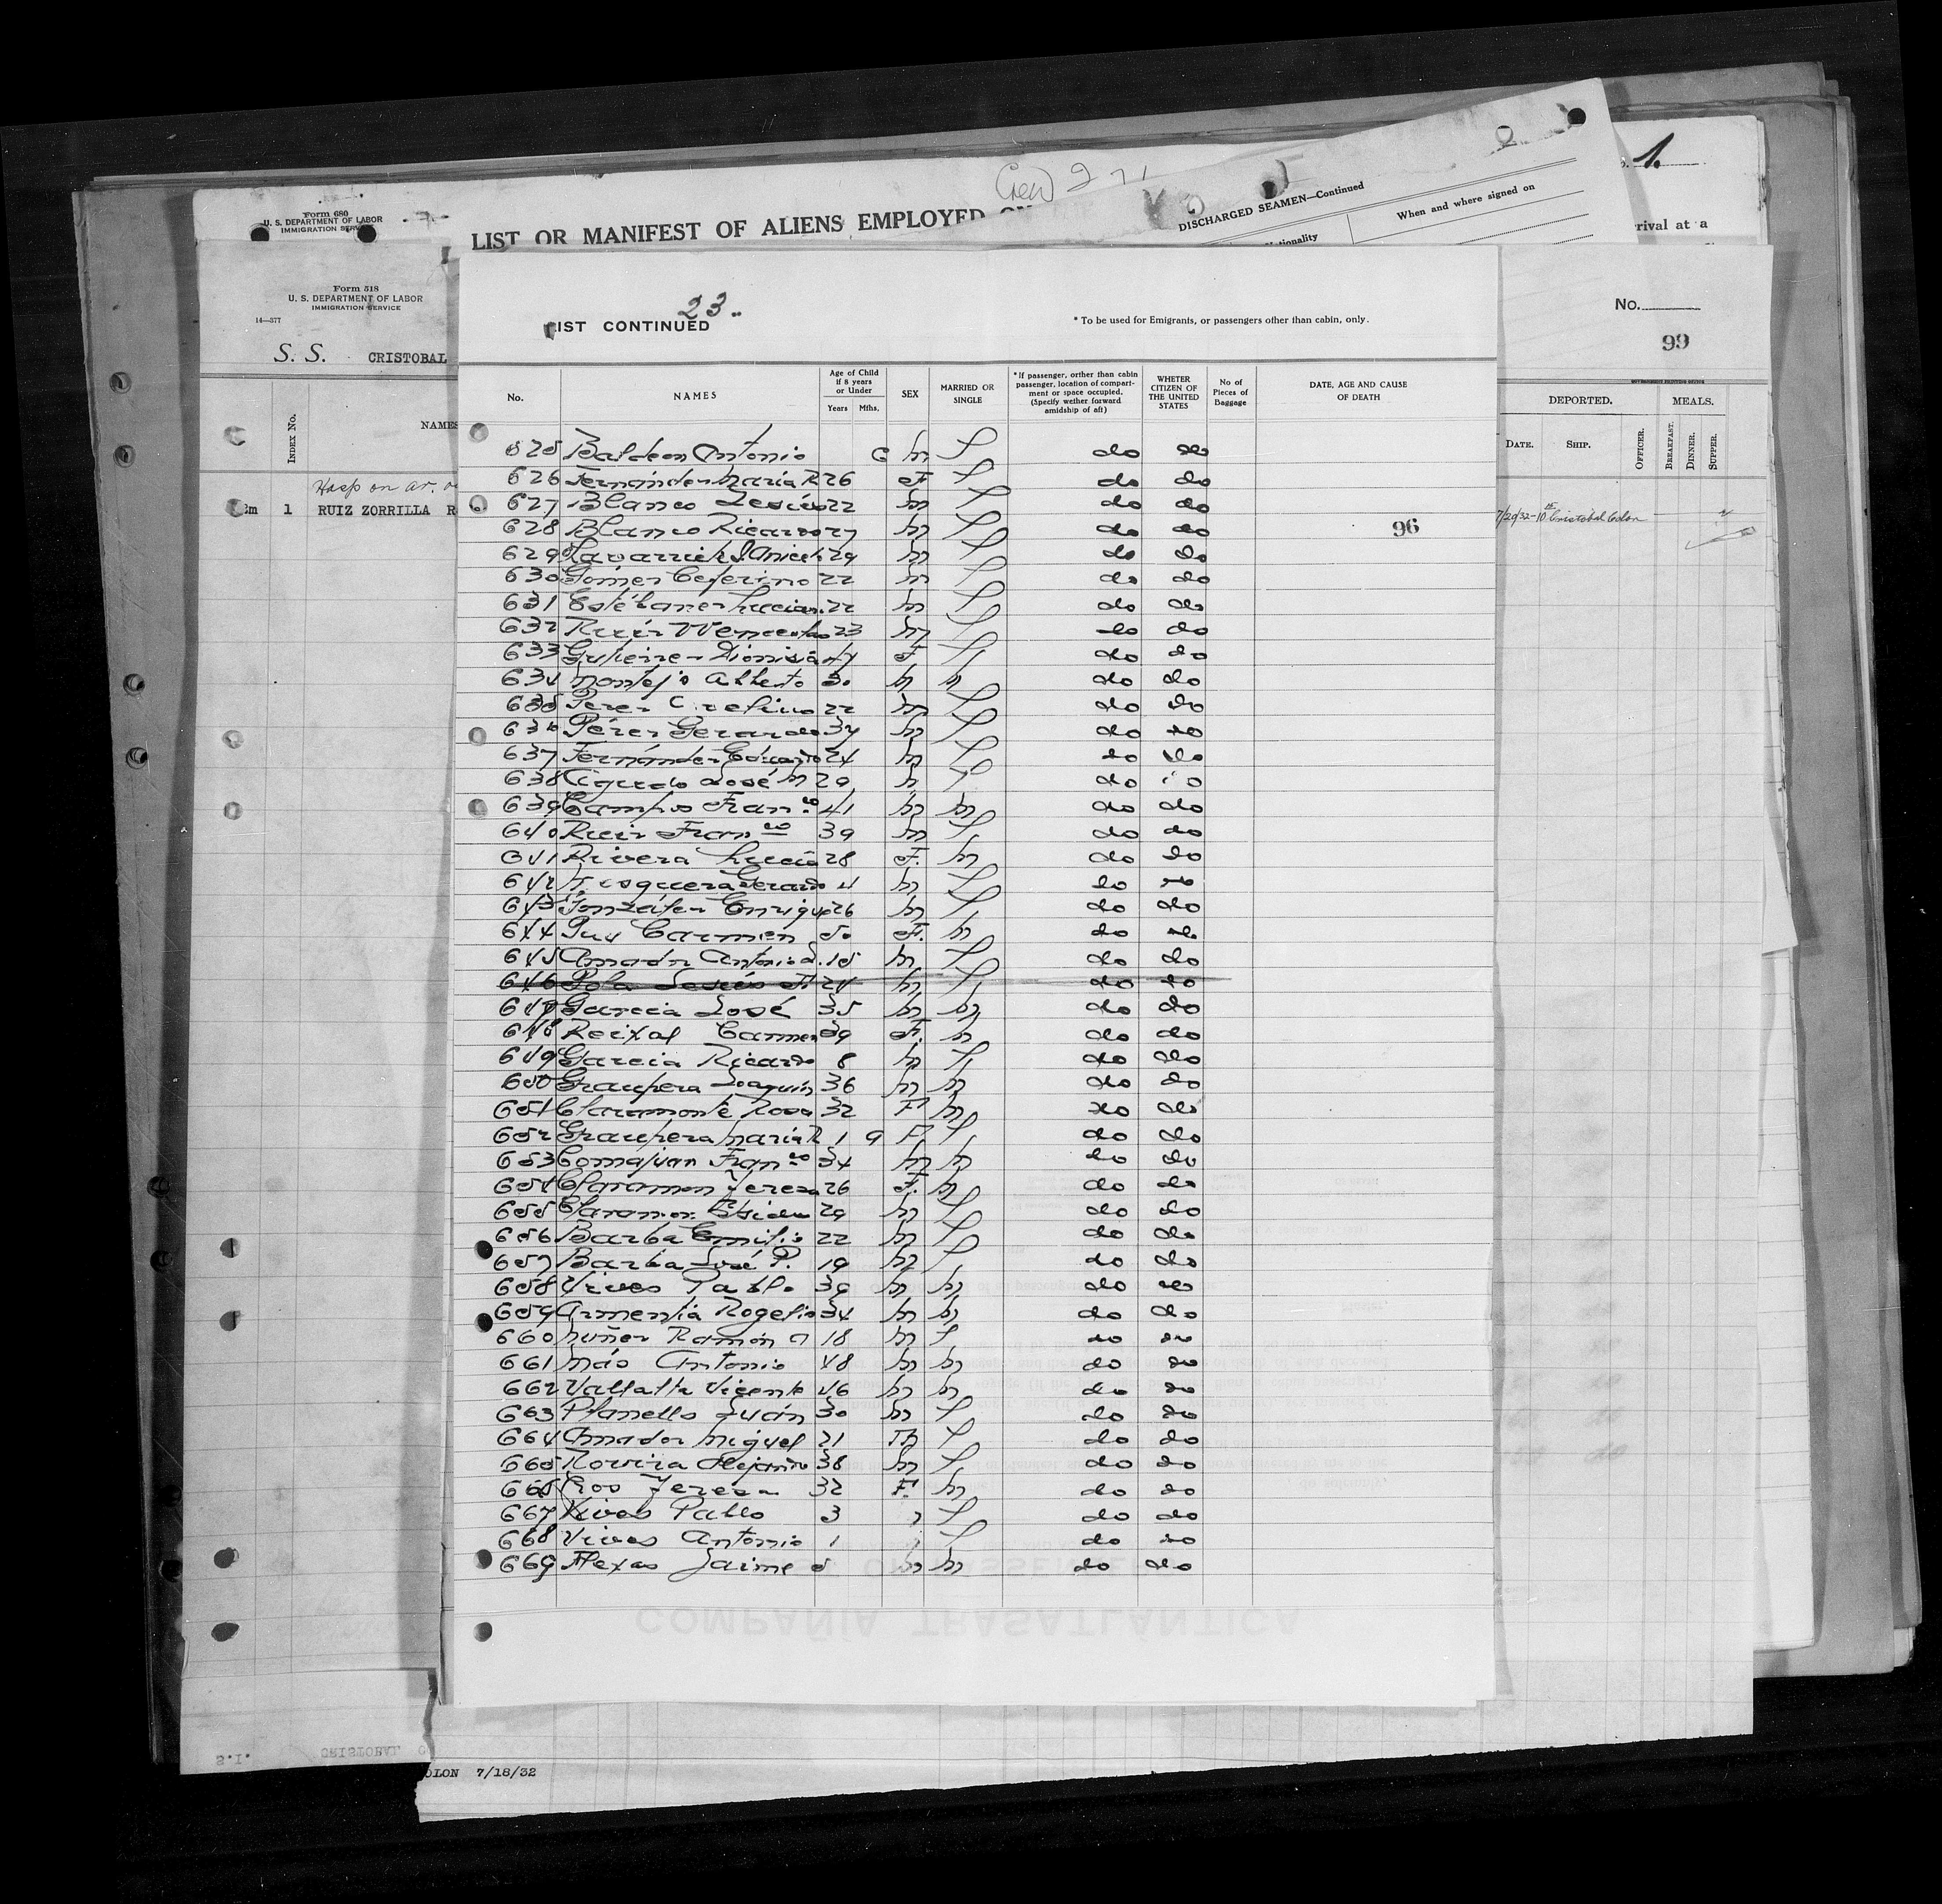 Crew 271
1.
LIST OR MANIFEST OF ALIENS EMPLOYED ON
DISCHARGED SEAMEN—Continued
When and where signed on
rival at a
Form 680
U. S. DEPARTMENT OF LABOR
IMMIGRATION SERVICE
Form 518
U. S. DEPARTMENT OF LABOR
IMMIGRATION SERVICE
14—577
S. S. CRISTOBAL
Index No.
NAMES
Hosp on ar.
1 RUIZ ZORRILLA R
No.
99
DEPORTED. MEALS.
DATE. SHIP. OFFICER. BREAKFAST. DINNER. SUPPER.
7/20/32-10 Cristobal Colon
23.
LIST CONTINUED
* To be used for Emigrants, or passengers other than cabin, only.
No. NAMES Age of Child if 8 years or Under Years Mths. SEX MARRIED OR SINGLE * If passenger, orther than cabin passenger, location of compartment or space occupied. (Specify wether forward amidship of aft) WHETER CITIZEN OF THE UNITED STATES No of Pieces of Baggage DATE, AGE AND CAUSE OF DEATH
625 Baldeon Antonio 6 m S do do
626 Fernández María R 26 F S do do
627 Blanco Jesús 22 m S do do
628 Blanco Ricardo 27 m S do do 96
629 29 m S do do
630 Gómez Ceferino 22 m S do do
631 Estébanez Lucian. 22 m S do do
632 Ruiz Wenceslao 23 m S do do
633 Gutierrez Dionisia 47 F S do do
634 Montejo Alberto 30 m m do do
635 Perez 22 m S do do
636 Pérez Gerardo 37 m S do do
637 Fernández Eduardo 24 m S do do
638 José M 29 m S do do
639 Campos Franco 41 m m do do
640 Ruiz Franco 39 m S do do
641 Rivera Lucía 28 F. m do do
642 Gerardo 4 m S do do
643 González Enrique 26 m S do do
644 Carmen 50 F. m do do
645 Amador Antonio S. 15 m S do do
646 Pola Jesús F 24 m S do do
647 García José 35 m m do do
648 Reixal Carmen 39 F. m do do
649 García Ricardo 8 m S do do
650 Graupera Joaquín 36 m m do do
651 Claramonte Rosa 32 F m do do
652 Graupera María R 1 9 F S do do
653 Comajuan Franco 34 m m do do
654 Claramon Teresa 26 F. m do do
655 Claramon 29 m S do do
656 Barba Emilio 22 m S do do
657 Barba José P. 19 m S do do
658 Vives Pablo 39 m m do do
659 Armentia Rogelio 34 m m do do
660 Muñoz Ramón A 18 m S do do
661 Más Antonio 48 m m do do
662 Vallalta Vicente 46 m m do do
663 Planells Juán 30 m S do do
664 Amador Miguel 21 m S do do
665 Rovira Alejandro 38 m S do do
666 Ros Teresa 32 F. m do do
667 Vives Pablo 3 S do do
668 Vives Antonio 1 S do do
669 Flexas Jaime m m do do
COMPAÑÍA TRASATLÁNTICA
S.I. CRISTOBAL
OLON 7/18/32